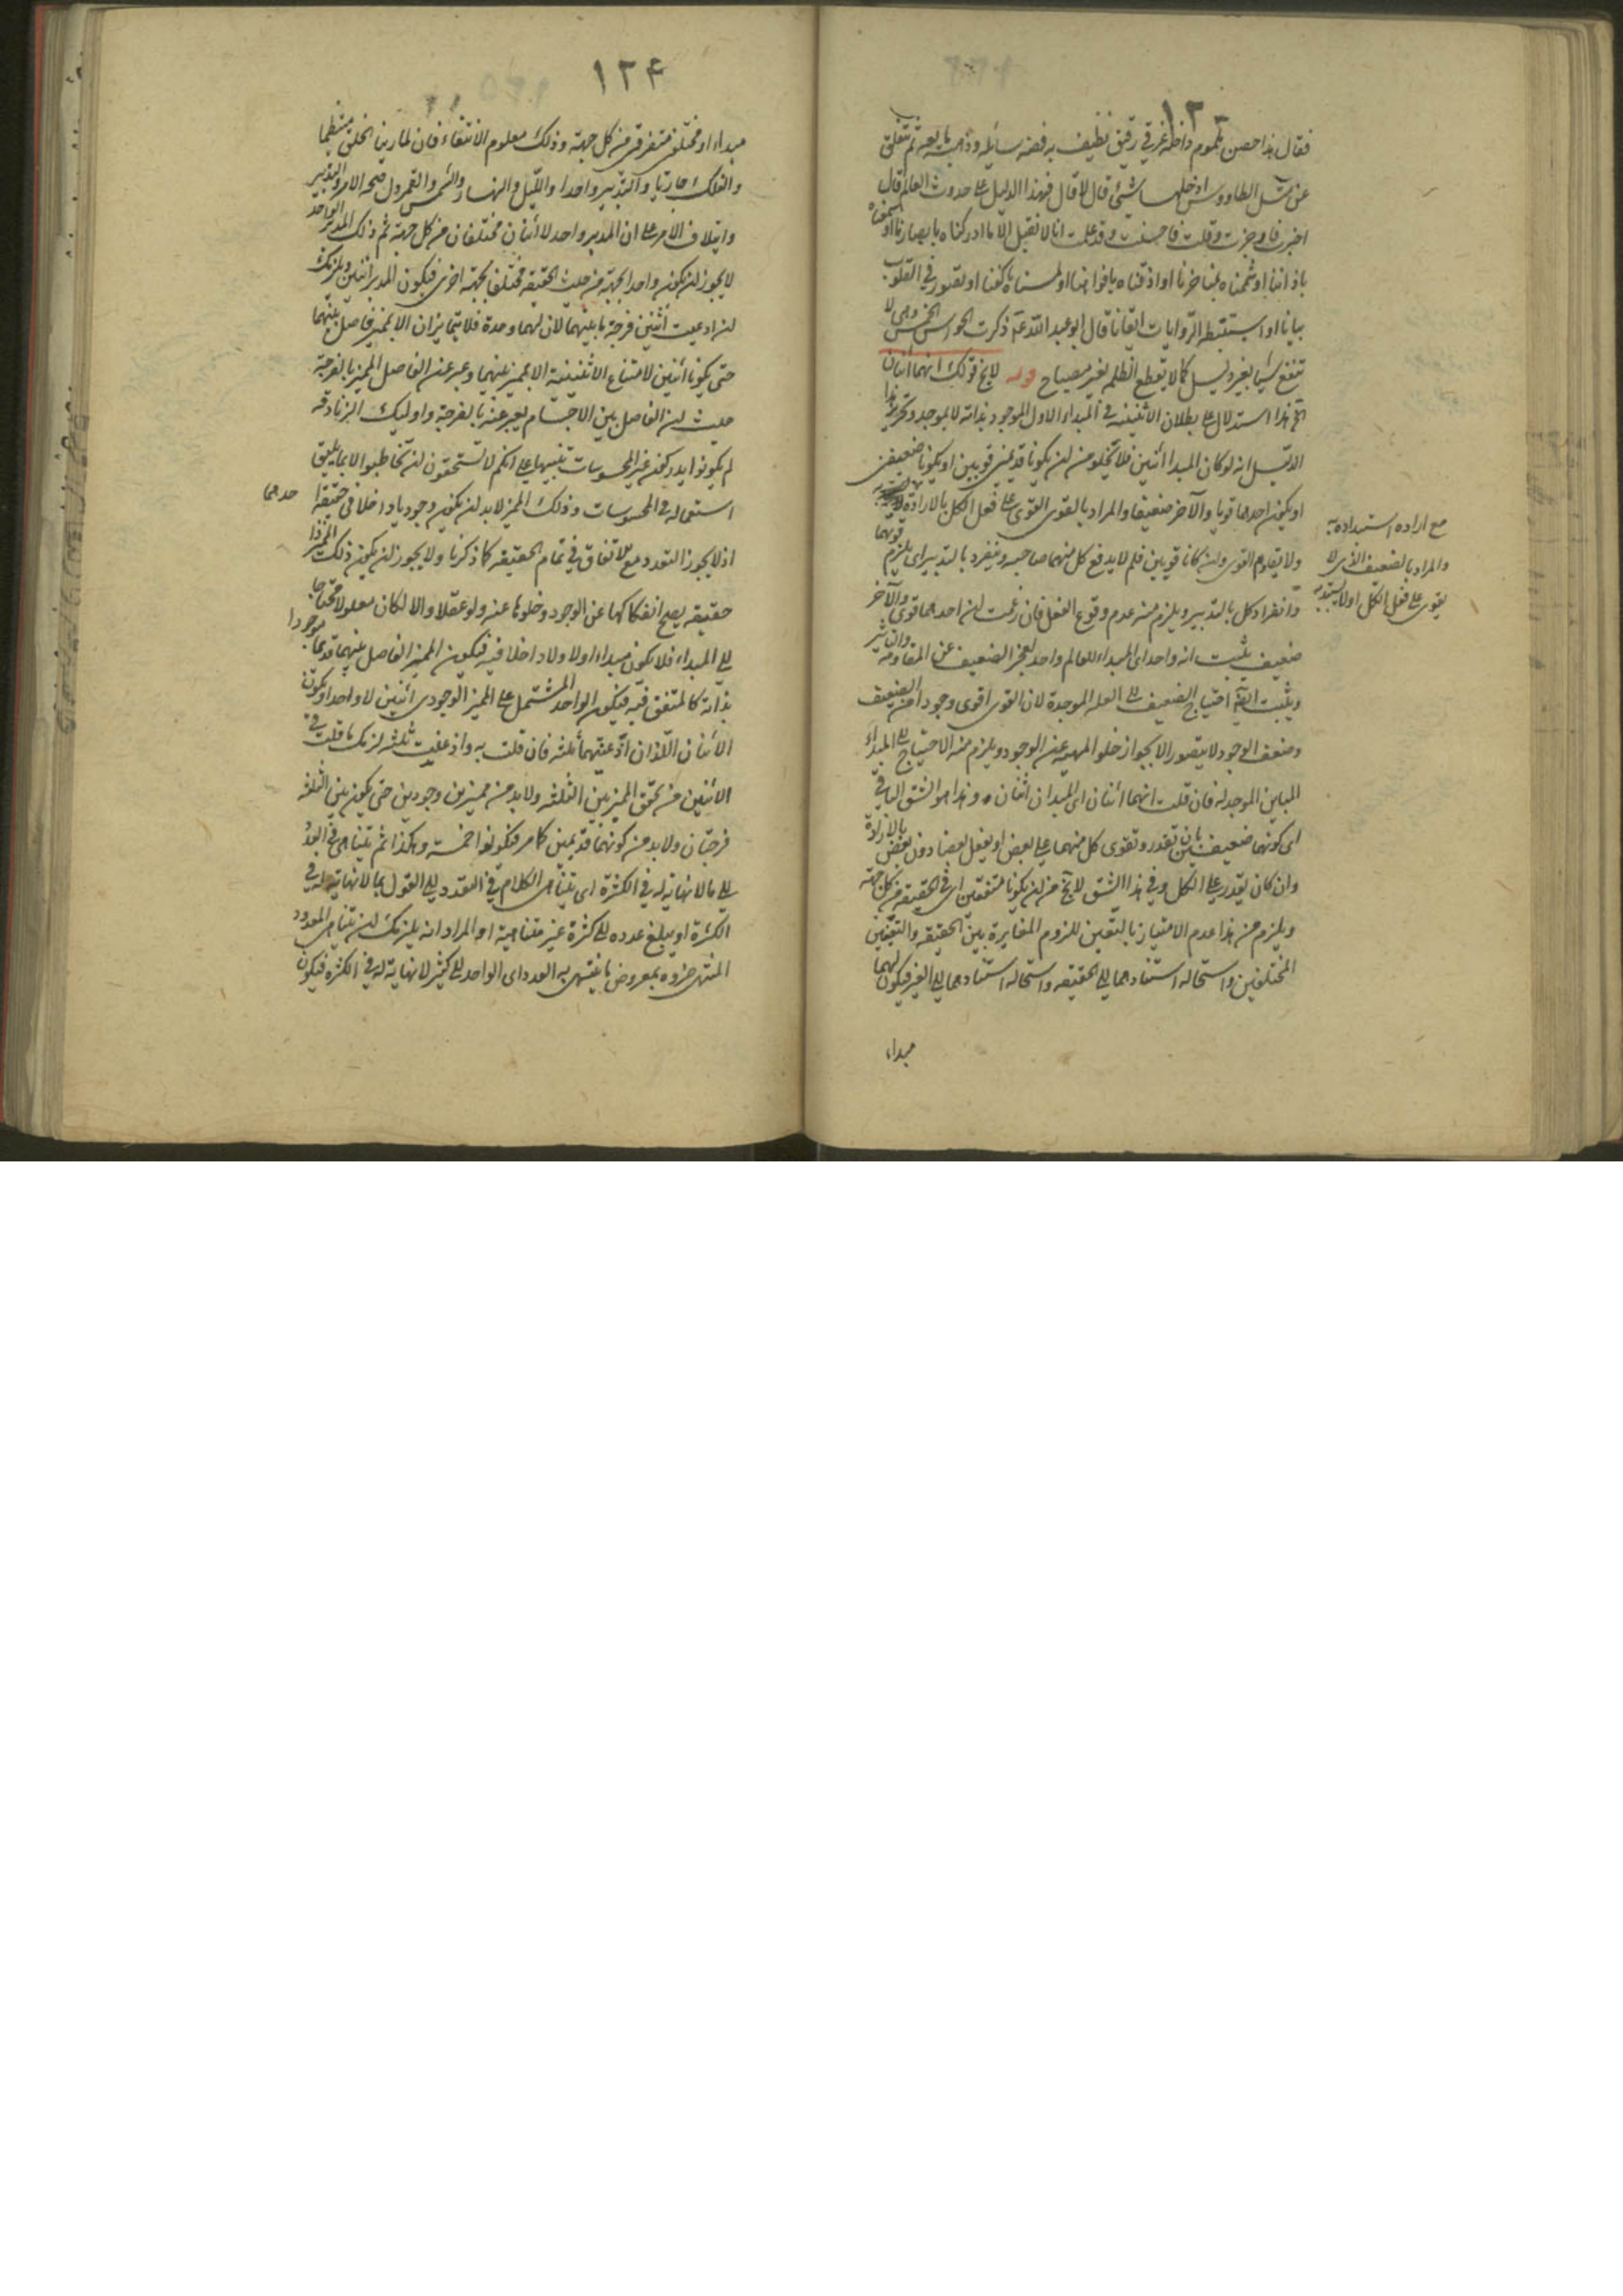 فقال هذا حصن ملموم داخله غرقئ رقيق نظيف به فضه سائله وذهبه مايعه ثم تنفلق
عن مثل الطاووس ادخلها شئ قال لا قال فهذا الدليل على حدوث العالم قال
اخبرت فاوجزت وقلت فاحسنت وقد علمت انا لا نقبل الا ما ادركناه بابصارنا او سمعناه
باذاننا او شممناه بمناخرنا او اذقناه بافواهنا او لمسناه باكفنا او تصور في القلوب
بيانا او استنبطه الروايات ايقانا قال ابو عبد الله ع ذكرت الحواس الخمس وهى لا
تنفع شيأ بغير دليل كما لا يقطع الظلم بغير مصباح قوله لا يخ قولك انهما اثنان
الخ هذا استدلال على بطلان الاثنينية في المبداء الاول الموجود بذاته لا بموجد وتحرير هذا
الدليل انه لو كان المبدا اثنين فلا يخلو من ان يكونا قديمين قويين او يكونا ضعيفين
او يكون احدهما قويا والآخر ضعيفا والمراد بالقوى القوى على فعل الكل بالارادة
مع ارادة استبداده به
والمراد بالضعيف الذى لا
يقوى على فعل الكل او لا يستبد به
ولا يقاوم القوى وان كانا قويين فلم لا يدفع كل منهما صاحبه وينفرد بالتدبير اى يلزم قوتهما
وانفراد كل بالتدبير ويلزم منه عدم وقوع الفعل فان زعمت ان احدهما قوى والآخر
ضعيف يثبت انه واحد اى المبداء للعالم واحد لعجز الضعيف عن المقاومه والتاثير
ويثبت احتياج الضعيف الى العله الموجدة لان القوى اقوى وجودا من الضعيف
وضعف الوجود لا يتصور الا بجواز خلو المهيه عن الوجود ويلزم منه الاحتياج الى المبداء
المباين الموجد له فان قلت انهما اثنان اى المبدا ان اثنان وهذا هو الشق الباقى
اى كونهما ضعيفين بان تقدر وتقوى كل منهما على بعض او يفعل بعضا دون بعض بالارادة
وان كان يقدر على الكل وفي هذا الشق لا يخ من ان يكونا متفقين اى في الحقيقه من كل جهه
ويلزم من هذا عدم الامتياز بالتعين للزوم المغايرة بين الحقيقه والتعينين
المختلفين واستحاله استنادهما الى الحقيقه واستحاله استنادهما الى الغير فيكون لهما
مبداء
١٢٤
مبداء او مختلفه متفرقه من كل جهة وذلك معلوم الانتفاء فان لما راينا الخلق منتظما
والفلك جاريا والتدبير واحدا والليل والنهار والشمس والقمر دل صحه الامر والتدبير
وايتلاف الامر على ان المدبر واحد لا اثنان مختلفان من كل جهة ثم ذلك المدبر الواحد
لا يجوز ان يكون واحدا بجهة من حيث الحقيقه مختلفا بجهة اخرى فيكون المدبر اثنين ويلزمك
ان ادعيت اثنين فرجة ما بينهما لان لهما وحدة فلا يتمايزان الا بمميز فاصل بينهما
حتى يكونا اثنين لامتناع الاثنينية الا بمميز بينهما وعبر عن الفاصل المميز بالفرجة
حيث ان الفاصل بين الاجسام يعبر عنه بالفرجة واوليك الزنادقه
لم يكونوا يدركون غير المحسوسات تنبيها على انكم لا تستحقون ان تخاطبوا الا بما يليق
استعماله في المحسوسات وذلك المميز لا بد ان يكون وجوديا داخلا في حقيقه احدهما
اذ لا يجوز التعدد مع الاتفاق في تمام الحقيقه كما ذكرنا ولا يجوز ان يكون ذلك المميز ذا
حقيقه يصح انفكاكها عن الوجود وخلوها عنه ولو عقلا والا لكان معلولا محتاجا
الى المبداء فلا يكون مبداء اولا ولا داخلا فيه فيكون المميز الفاصل بينهما قديما موجودا
بذاته كالمتفق فيه فيكون الواحد المشتمل على المميز الوجودى اثنين لا واحدا ويكون
الاثنان اللذان ادعيتهما ثلثه فان قلت به وادعيت ثلثه لزمك ما قلت في
الاثنين من تحقق المميز بين الثلثه ولا بد من مميزين وجوديين حتى يكون بين الثلثه
فرجتان ولا بد من كونهما قديمين كما مر فيكونوا خمسة وهكذا ثم يتناهى في العدد
الى ما لا نهاية له في الكثرة اى يتناهى الكلام في التعدد الى القول بما لا نهاية له في
الكثرة او يبلغ عدده الى كثرة غير متناهية او المراد انه يلزمك ان يتناهى المعدود
المنتهى ضروره بمعروض ما ينتهى به العدد اى الواحد الى كثير لا نهاية له في الكثرة فيكون